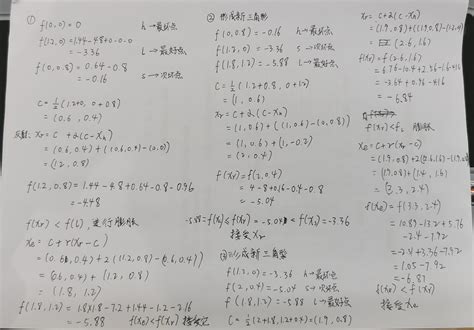 ①
f(0,0)=0 h→最坏点
f(1.2,0)=1.44-4.8+0-0-0
=-3.36 l→最好点
f(0,0.8)=0.64-0.8
=-0.16 s→次坏点
C=½(1.2+0, 0+0.8)
=(0.6, 0.4)
反射: Xr=C+α(C-Xh)
=(0.6,0.4)+((0.6,0.4)-(0,0))
=(1.2,0.8)
f(1.2,0.8)=1.44-4.8+0.64-0.8-0.96
=-4.48
f(Xr)<f(l), 进行膨胀
Xe=C+γ(Xr-C)
=(0.6,0.4)+2((1.2,0.8)-(0.6,0.4))
=(0.6,0.4)+(1.2,0.8)
=(1.8,1.2)
f(1.8,1.2)=1.8×1.8-7.2+1.44-1.2-2.16
=-5.88 f(Xe)<f(Xr) 接受Xe
② 形成新三角形
f(0,0.8)=-0.16 h→最坏点
f(1.2,0)=-3.36 s→次坏点
f(1.8,1.2)=-5.88 l→最好点
C=½(1.2+1.8, 0+1.2)
=(1, 0.6)
Xr=C+α(C-Xh)
=(1,0.6)+((1,0.6)-(0,0.8))
=(1,0.6)+(1,-0.2)
=(2,0.4)
f(Xr)=f(2,0.4)
=4-8+0.16-0.4-0.8
=-5.04
-5.88=f(Xl)<f(Xr)=-5.04<f(Xs)=-3.36
接受Xr
③ 形成新三角型
f(1.2,0)=-3.36 h→最坏点
f(2,0.4)=-5.04 s→次坏点
f(1.8,1.2)=-5.88 l→最好点
C=½(2+1.8,1.2+0.4)=(1.9,0.8)
Xr=C+α(C-Xh)
=(1.9,0.8)+((1.9,0.8)-(1.2,0))
=(2.6,1.6)
f(Xr)=f(2.6,1.6)
=6.76-10.4+2.56-1.6-4.16
=-3.64+0.96-4.16
=-6.84
f(Xr)<fl 膨胀
Xe=C+γ(Xr-C)
=(1.9,0.8)+2((2.6,1.6)-(1.9,0.8))
=(1.9,0.8)+(1.4,1.6)
=(3.3,2.4)
f(Xe)=f(3.3,2.4)
=10.89-13.2+5.76
-2.4-7.92
=-2.4+3.36-7.92
=1.05-7.92
=-6.87
f(Xe)<f(Xr)
接受Xe